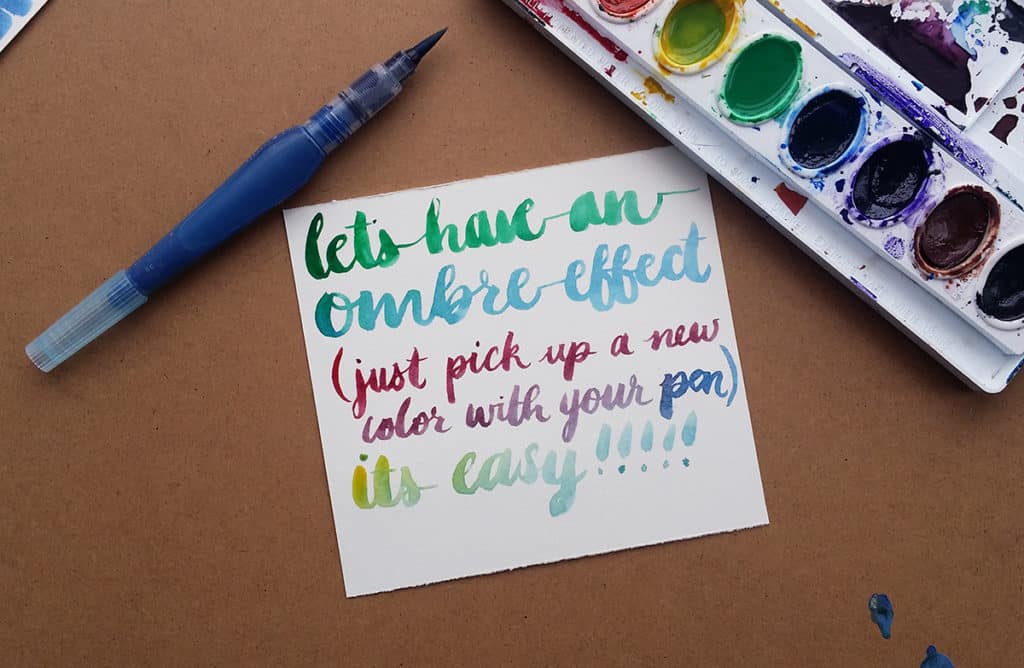 lets have an
ombre effect
(just pick up a new
color with your pen)
its easy!!!!!